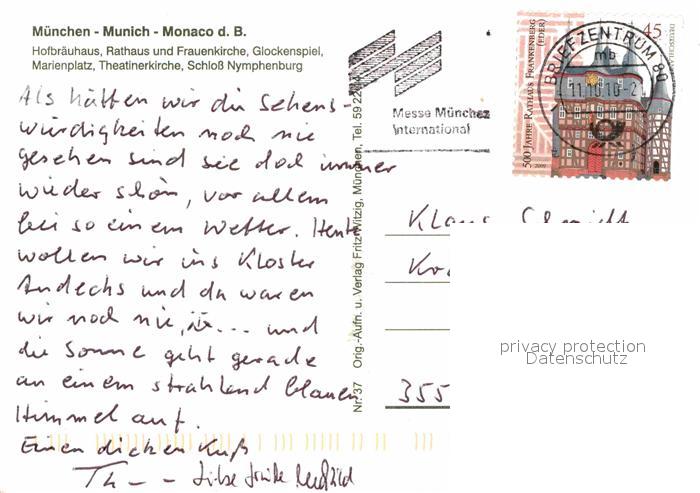 München - Munich - Monaco d. B.
Hofbräuhaus, Rathaus und Frauenkirche, Glockenspiel,
Marienplatz, Theatinerkirche, Schloß Nymphenburg
Als hätten wir die Sehens-
würdigkeiten noch nie
gesehen sind sie doch immer
wieder schön, vor allem
bei so einem Wetter. Heute
wollen wir ins Kloster
Andechs und da waren
wir noch nie, ... und
die Sonne geht gerade
an einem strahlend blauen
Himmel auf.
Einen dicken Kuß
Nr. 37 Orig.-Aufn. u. Verlag Fritz Witzig, München, Tel. 59 22
Messe München
International
500 JAHRE RATHAUS FRANKENBERG
(EDER)
45
BRIEFZENTRUM 80
mb
Klaus Schmidt
355
privacy protection
Datenschutz